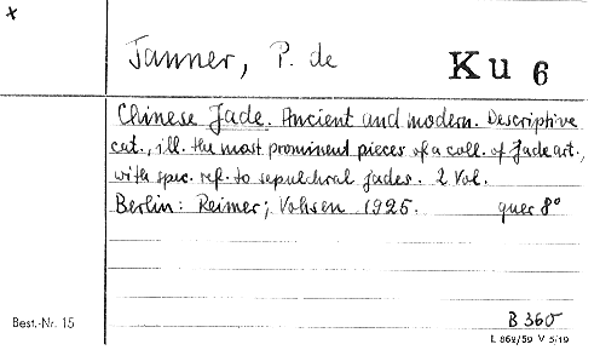 x
Tanner, P. de
Ku 6
Chinese Jade. Ancient and modern. Descriptive
cat., ill. the most prominent pieces of a coll. of Jade art.,
with spec. ref. to sepulchral jades. 2 Vol.
Berlin: Reimer; Vohsen 1925. quer 8°
B 360
Best.-Nr. 15
L 862/59 V 5/19